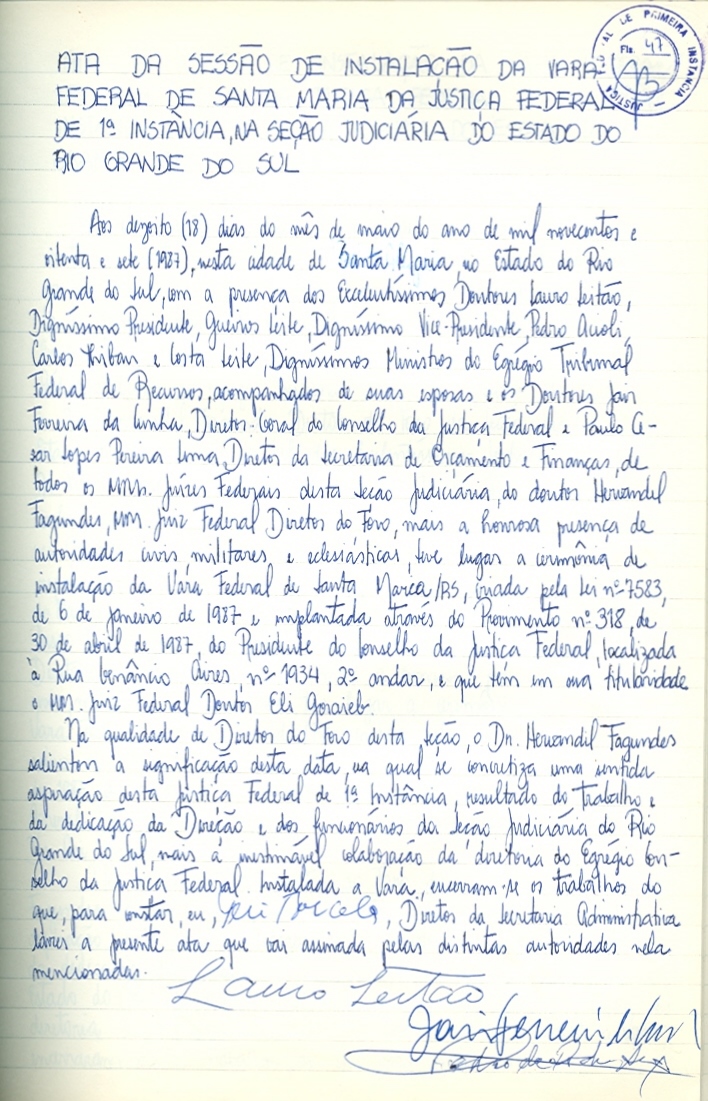 AL DE PRIMEIRA INSTANCIA
JUSTIÇA
Fls. 47
ATA DA SESSÃO DE INSTALAÇÃO DA VARA
FEDERAL DE SANTA MARIA DA JUSTIÇA FEDERAL
DE 1ª INSTÂNCIA, NA SEÇÃO JUDICIÁRIA DO ESTADO DO
RIO GRANDE DO SUL
Aos dezoito (18) dias do mês de maio do ano de mil novecentos e
oitenta e sete (1987), nesta cidade de Santa Maria, no Estado do Rio
Grande do Sul, com a presença dos Excelentíssimos Doutores Lauro Leitão,
Digníssimo Presidente, Gueiros Leite, Digníssimo Vice-Presidente, Pedro Acioli,
Carlos Thibau e Costa Leite, Digníssimos Ministros do Egrégio Tribunal
Federal de Recursos, acompanhados de suas esposas e os Doutores Jair
Ferreira da Cunha, Diretor-Geral do Conselho da Justiça Federal e Paulo Ce-
sar Lopes Pereira Lima, Diretor da Secretaria de Orçamento e Finanças, de
todos os MMs. Juízes Federais desta Seção Judiciária, do doutor Hervandil
Fagundes, MM. Juiz Federal Diretor do Foro, mais a honrosa presença de
autoridades civis, militares, e eclesiásticas, teve lugar a cerimônia de
instalação da Vara Federal de Santa Maria/RS, criada pela Lei nº 7583,
de 6 de janeiro de 1987 e implantada através do Provimento nº 318, de
30 de abril de 1987, do Presidente do Conselho da Justiça Federal, localizada
à Rua Venâncio Aires, nº 1934, 2º andar, e que tém em sua titularidade
o MM. Juiz Federal Doutor Eli Goraieb.
Na qualidade de Diretor do Foro desta Seção, o Dr. Hervandil Fagundes
salientou a significação desta data, na qual se concretiza uma sentida
aspiração desta Justiça Federal de 1ª Instância, resultado do trabalho e
da dedicação da Direção e dos funcionários da Seção Judiciária do Rio
Grande do Sul, mais a inestimável colaboração da diretoria do Egrégio Con-
selho da Justiça Federal. Instalada a Vara, encerram-se os trabalhos do
que, para constar, eu, , Diretor da Secretaria Administrativa
lavrei a presente ata que vai assinada pelas distintas autoridades nela
mencionadas.
Lauro Leitão